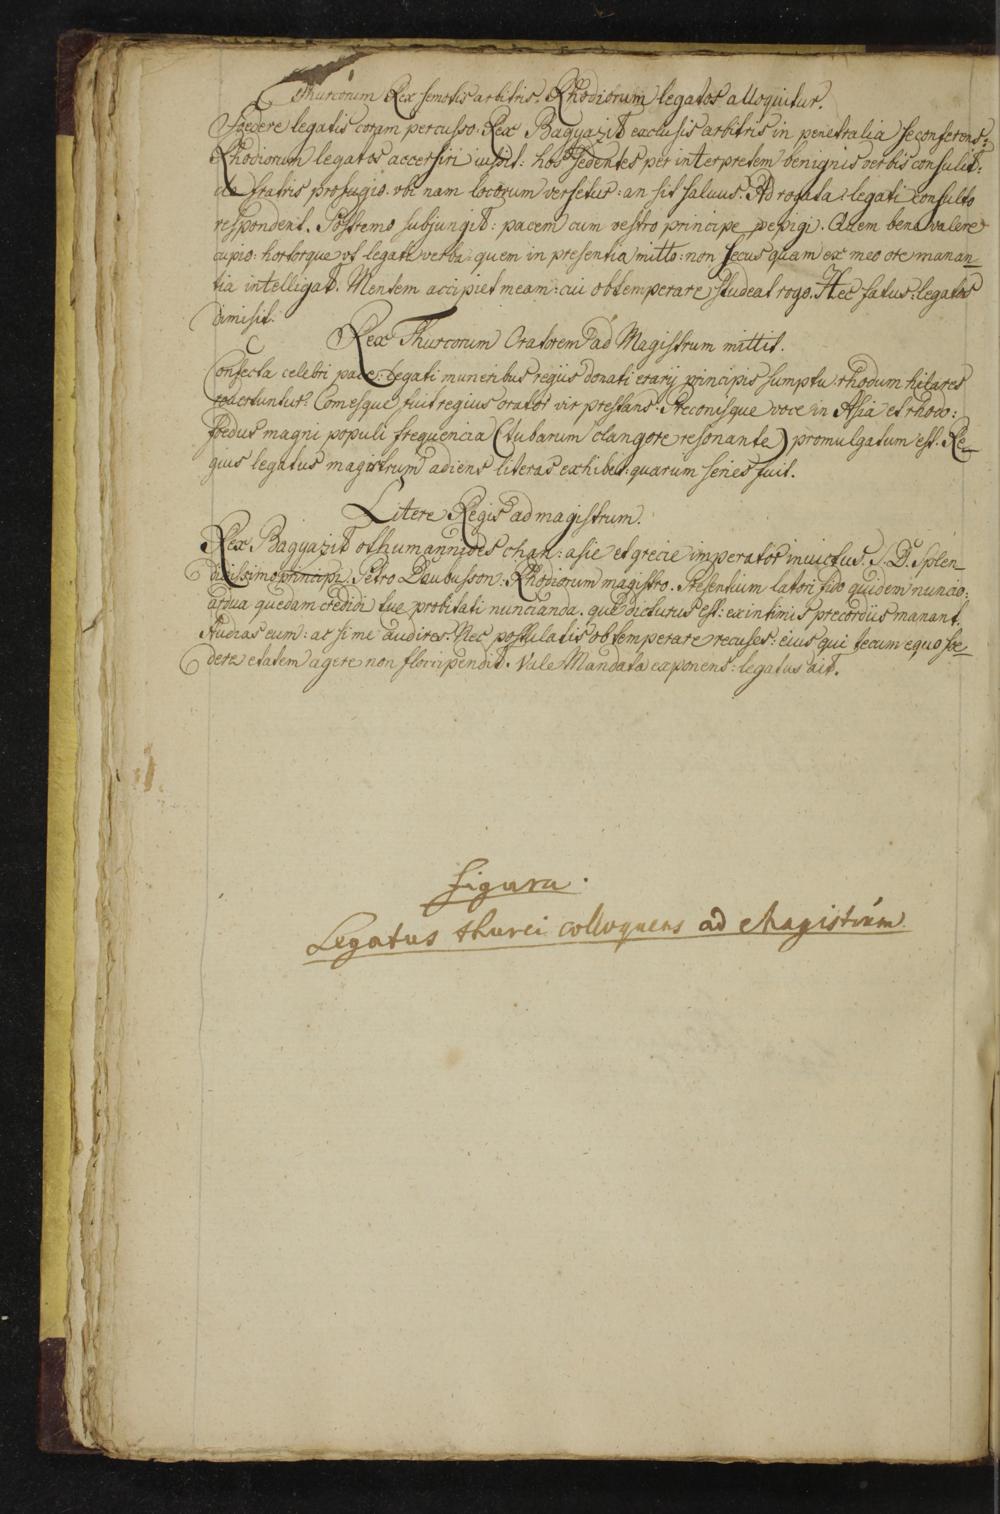 Thurcorum Rex semotis arbitris. Rhodiorum legatos alloquitur.
Foedere legatis coram percusso. Rex Bagyazit exclusis arbitris in penetralia se conferens:
Rhodiorum legatos accersiri iussit: hos sedentes per interpretem benignis verbis consulit:
de fratris profugio. vbi nam locorum versetur: an sit saluus. Ad rogata: legati consulto
respondent. Postremo subjungit: pacem cum vestro principe pepigi. Quem bene valere
cupio: hortorque vt legati verba: quem in presentia mitto: non secus quam ex meo ore manan-
tia intelligat. Mentem accipiet meam: cui obtemperare studeat rogo. Hec fatus: legatos
dimisit.
Rex Thurcorum Oratorem ad Magistrum mittit.
Confecta celebri pace: Legati muneribus regiis donati erarij principis sumptu: rhodum hilares
reuertuntur. Comesque fuit regius orator vir prestans. Preconisque voce in Asia et rhodo:
foedus magni populi frequencia (tubarum clangore resonante) promulgatum est. Re-
gius legatus magistrum adiens literas exhibet: quarum series fuit.
Litere Regis ad magistrum.
Rex Bagyazit othumannides chan: asie et grecie imperator inuictus. S. D. Splen
didissimo principi Petro Daubusson: Rhodiorum magistro. Presentium latori fido quidem nuncio:
ardua quedam credidi tue probitati nuncianda. que dicturus est: ex intimis precordiis manant.
Audias eum: ac si me audires. Nec postulatis obtemperare recuses: eius qui tecum equo foe-
dere etatem agere non floccipendit. Vale Mandata exponens: legatus ait.
figura.
Legatus thurci colloquens ad Magistrum